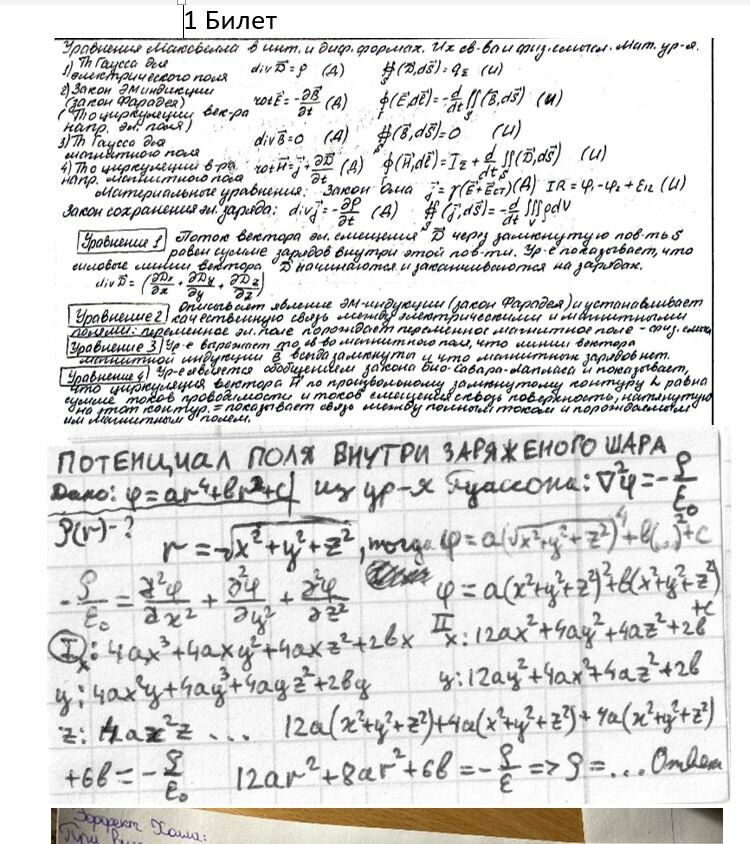 1 Билет
Уравнения Максвелла в инт. и диф. формах. Их св-ва и физ. смысл. Мат. ур-я.
1) Th Гаусса для электрического поля div D⃗ = ρ (Д) ∯(D⃗,dS⃗) = q_Σ (И)
2) Закон ЭМ индукции (закон Фарадея) rot E⃗ = -∂B⃗/∂t (Д) ∮(E⃗,dℓ⃗) = -d/dt ∬(B⃗,dS⃗) (И)
(Th о циркуляции век-ра напр. эл. поля)
3) Th Гаусса для магнитного поля div B⃗ = 0 (Д) ∯(B⃗,dS⃗) = 0 (И)
4) Th о циркуляции в-ра напр. магнитного поля rot H⃗ = j⃗ + ∂D⃗/∂t (Д) ∮(H⃗,dℓ⃗) = I_Σ + d/dt ∬(D⃗,dS⃗) (И)
Материальные уравнения: Закон Ома j⃗ = γ(E⃗+E⃗ст) (Д) IR = φ₁-φ₂+ε₁₂ (И)
Закон сохранения эл. заряда: div j⃗ = -∂ρ/∂t (Д) ∯(j⃗,dS⃗) = -d/dt ∭ρdV
Уравнение 1 Поток вектора эл. смещения D⃗ через замкнутую пов-ть S
равен сумме зарядов внутри этой пов-ти. Ур-е показывает, что
силовые линии вектора D⃗ начинаются и заканчиваются на зарядах.
div D⃗ = (∂Dx/∂x + ∂Dy/∂y + ∂Dz/∂z)
Уравнение 2 Описывает явление ЭМ-индукции (закон Фарадея) и устанавливает
качественную связь между электрическими и магнитными
полями: переменное эл. поле порождает переменное магнитное поле - физ. смысл
Уравнение 3 Ур-е выражает то св-во магнитного поля, что линии вектора
магнитной индукции B⃗ всегда замкнуты и что магнитных зарядов нет.
Уравнение 4 Ур-е является обобщением закона Био-Савара-Лапласа и показывает,
что циркуляция вектора H⃗ по произвольному замкнутому контуру L равна
сумме токов проводимости и токов смещения сквозь поверхность, натянутую
на этот контур. = показывает связь между полным током и порождаемым
им магнитным полем.
ПОТЕНЦИАЛ ПОЛЯ ВНУТРИ ЗАРЯЖЕНОГО ШАРА
Дано: φ=ar⁴+br²+c из ур-я Пуассона: ∇²φ = -ρ/ε₀
ρ(r)-? r = √x²+y²+z², тогда φ=a(√x²+y²+z²)⁴+b(...)²+c
-ρ/ε₀ = ∂²φ/∂x² + ∂²φ/∂y² + ∂²φ/∂z² φ=a(x²+y²+z²)²+b(x²+y²+z²)+c
I x: 4ax³+4axy²+4axz²+2bx II x: 12ax²+4ay²+4az²+2b
y: 4ax²y+4ay³+4ayz²+2by y: 12ay²+4ax²+4az²+2b
z: 4ax²z ... 12a(x²+y²+z²)+4a(x²+y²+z²)+4a(x²+y²+z²)
+6b = -ρ/ε₀ 12ar²+8ar²+6b = -ρ/ε => ρ = ... Ответ
Эффект Холла: